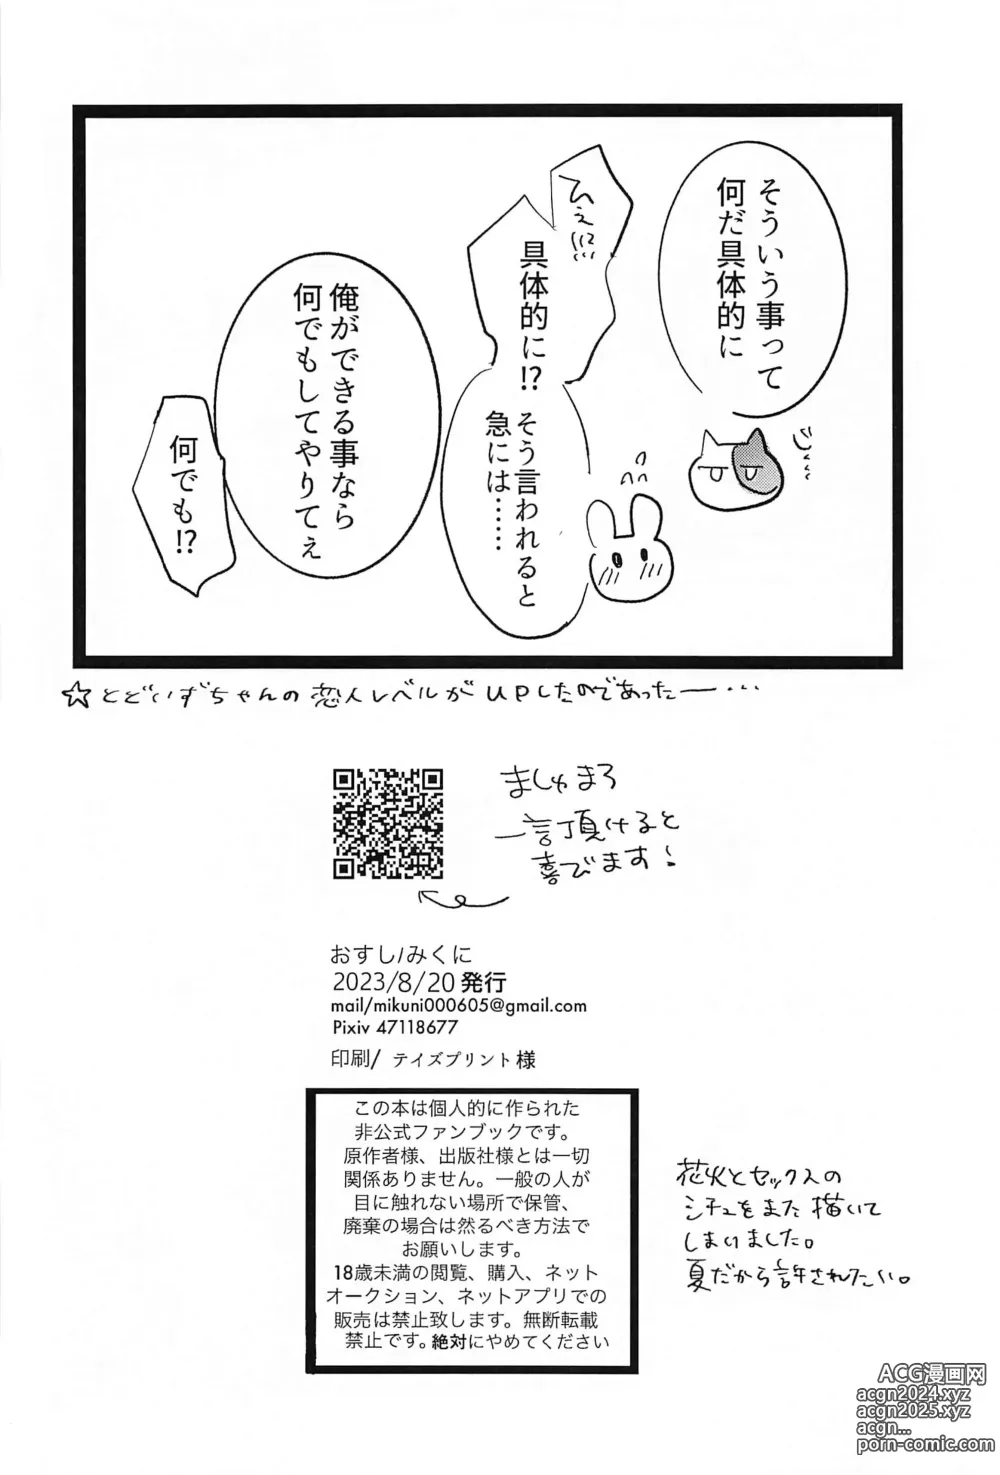 そういう事って
何だ具体的に
ジッ…
ひえ
具体的に!?
そう言われると
急には……
俺ができる事なら
何でもしてやりてぇ
何でも!?
☆とどいずちゃんの恋人レベルがUPしたのであったー…
ましゅまろ
一言頂けると
喜びます!
おすし/みくに
2023/8/20発行
mail/mikuni000605@gmail.com
Pixiv 47118677
印刷/ テイズプリント様
この本は個人的に作られた
非公式ファンブックです。
原作者様、出版社様とは一切
関係ありません。一般の人が
目に触れない場所で保管、
廃棄の場合は然るべき方法で
お願いします。
18歳未満の閲覧、購入、ネット
オークション、ネットアプリでの
販売は禁止致します。無断転載
禁止です。絶対にやめてください
花火とセックスの
シチュをまた描いて
しまいました。
夏だから許されたい。
ACG漫画网
acgn2024.xyz
acgn2025.xyz
acgn...
porn-comic.com